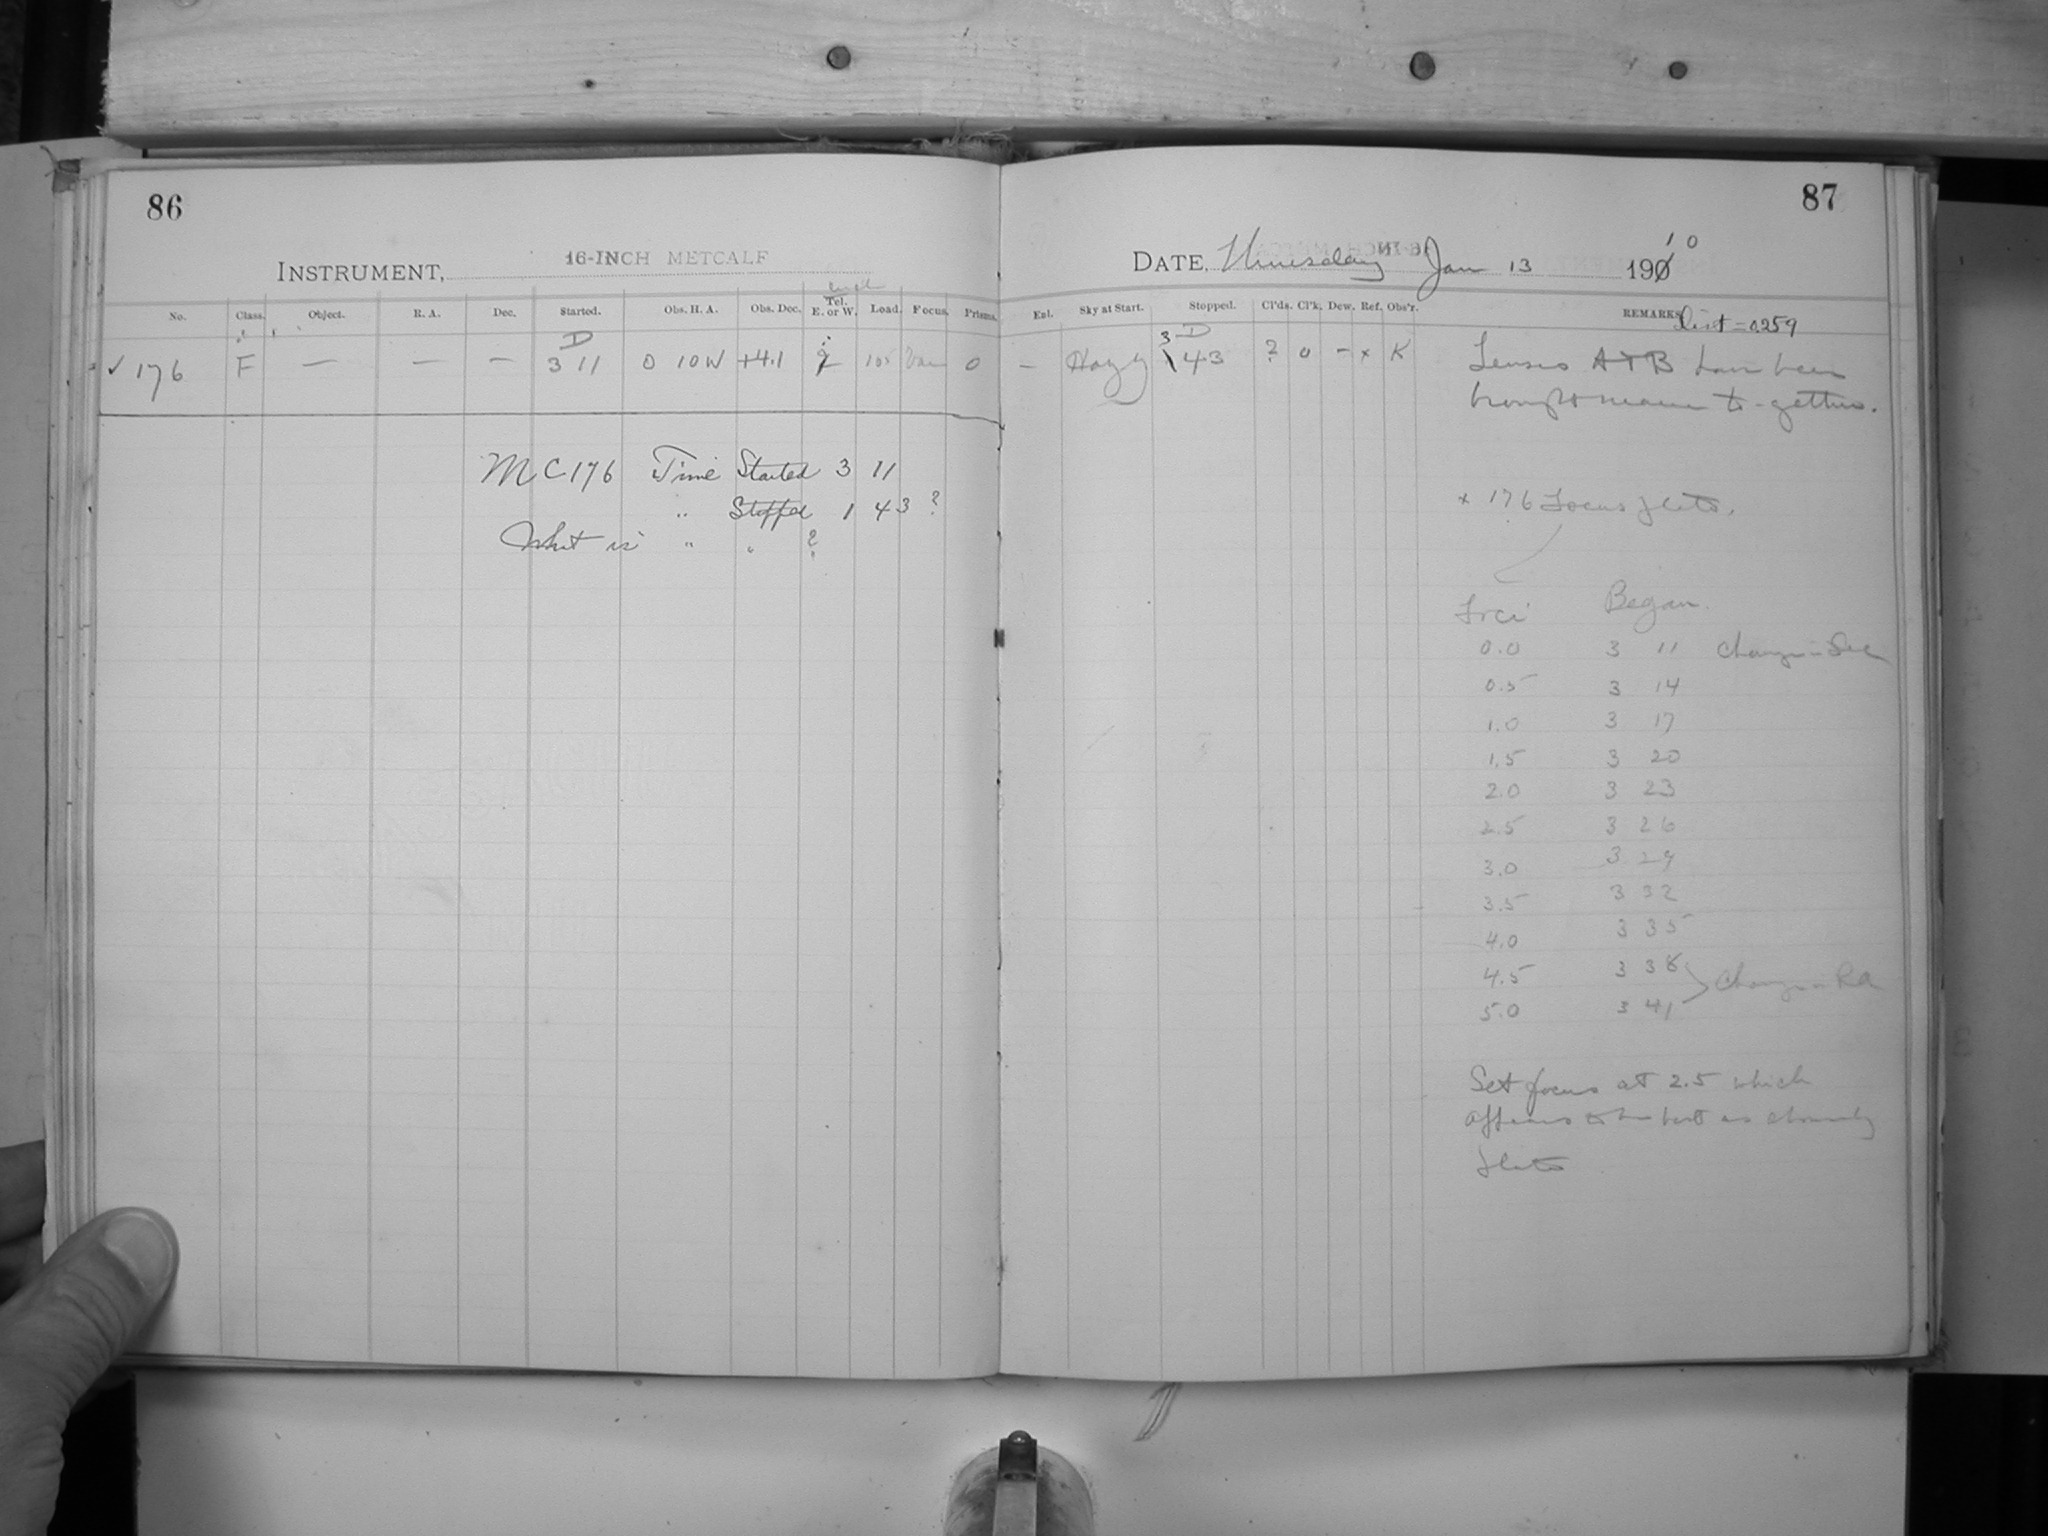 86
INSTRUMENT, 16-INCH METCALF
No. Class. Object. R. A. Dec. Started. Obs. H. A. Obs. Dec. Tel. E. or W. Load. Focus. Prisms.
D
✓ 176 F — — — 3 11 0 10W +4.1 105 Var 0
MC 176 Time Started 3 11
" Stopped 1 43 ?
What is " " ?
87
DATE, Thursday Jan 13 1910
Enl. Sky at Start. Stopped. Cl'ds. Cl'k. Dew. Ref. Obs'r. REMARKS
Dist = 0.259
3 D
— Hazy 43 ? 0 – x K Lenses A + B have been
brought nearer to-gether.
x 176 Focus plate.
Foci Began.
0.0 3 11 Change in Dec
0.5 3 14
1.0 3 17
1.5 3 20
2.0 3 23
2.5 3 26
3.0 3 29
3.5 3 32
4.0 3 35
4.5 3 38 Change in RA
5.0 3 41
Set focus at 2.5 which
appears to be best as shown by
plate